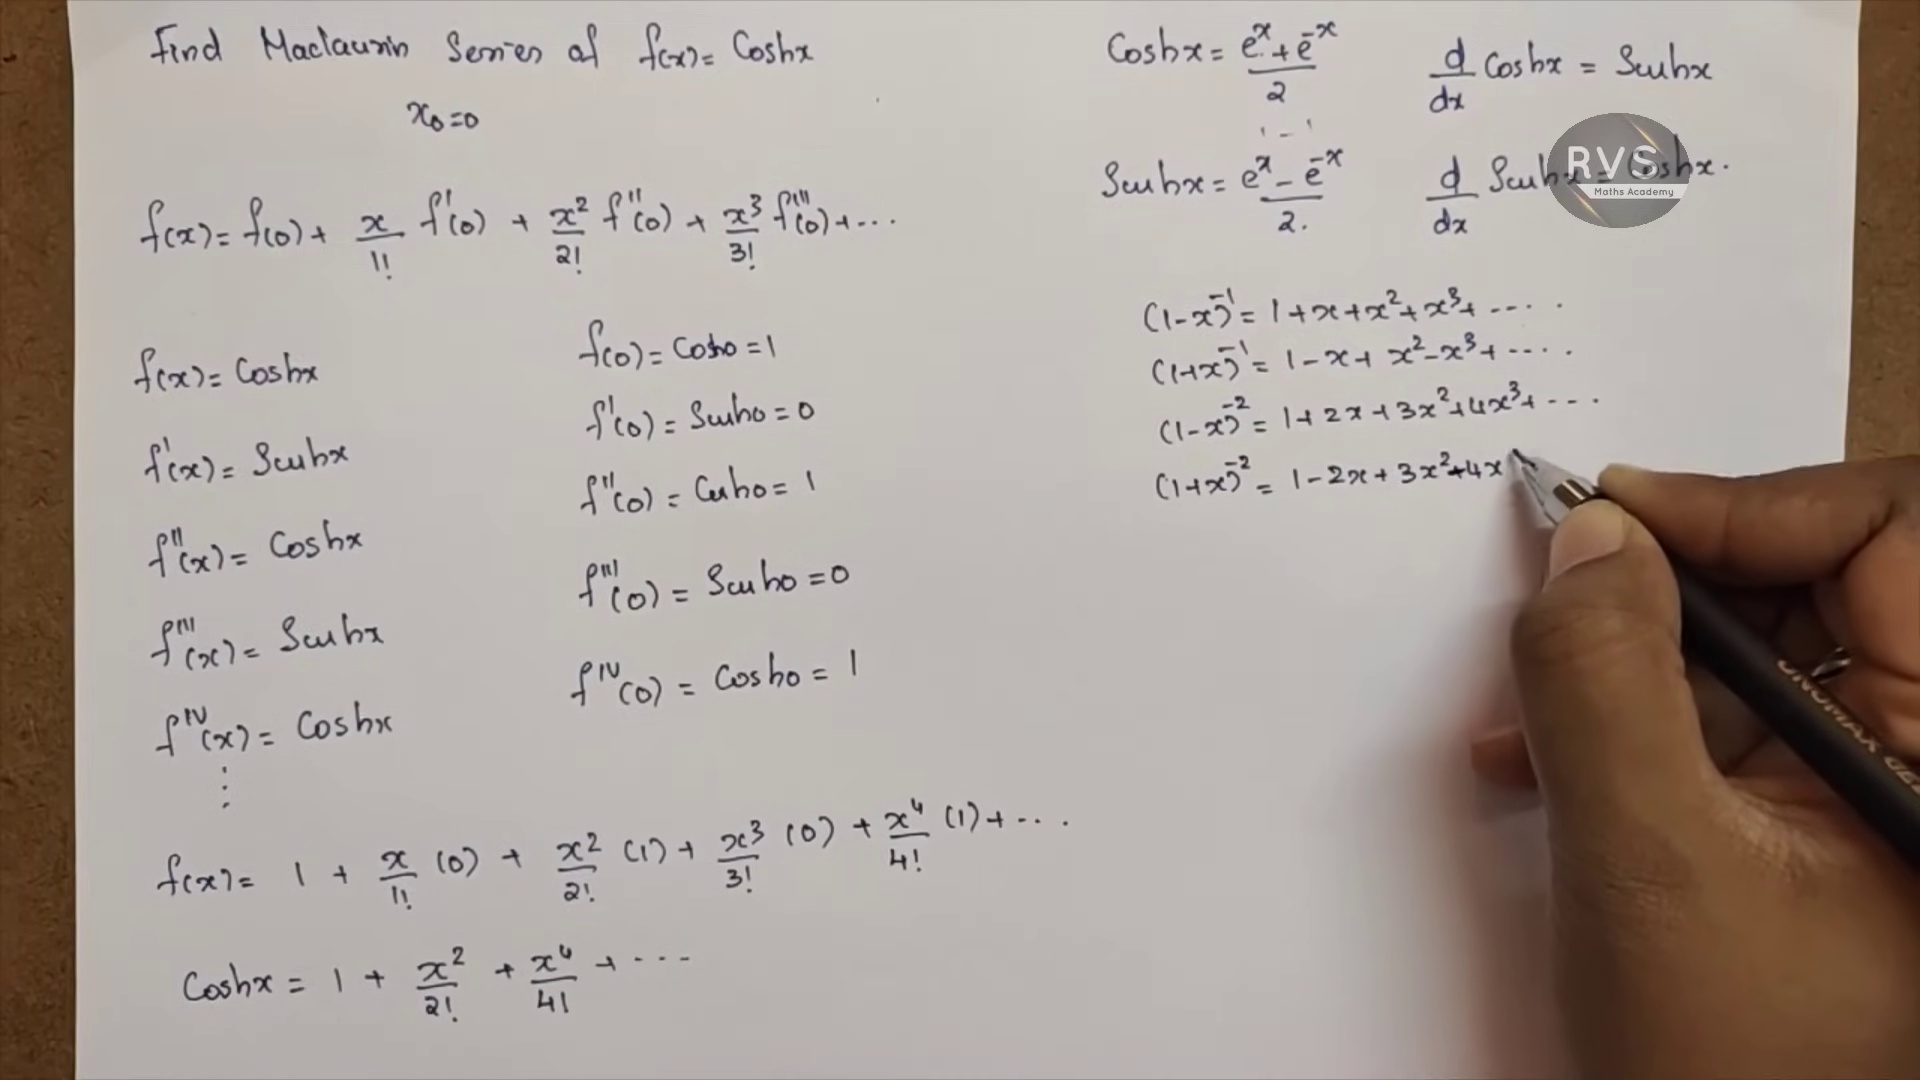 Find Maclaurin Series of f(x) = Coshx
x₀=0
f(x) = f(0) + x/1! f'(0) + x²/2! f''(0) + x³/3! f'''(0) + ...
f(x) = Coshx
f(0) = Cosh0 = 1
f'(x) = Sinhx
f'(0) = Sinh0 = 0
f''(x) = Coshx
f''(0) = Cosh0 = 1
f'''(x) = Sinhx
f'''(0) = Sinh0 = 0
f^IV(x) = Coshx
f^IV(0) = Cosh0 = 1
⋮
f(x) = 1 + x/1! (0) + x²/2! (1) + x³/3! (0) + x⁴/4! (1) + ...
Coshx = 1 + x²/2! + x⁴/4! + ...
Coshx = (e^x + e^-x)/2
d/dx Coshx = Sinhx
Sinhx = (e^x - e^-x)/2.
d/dx Sinhx = Coshx.
RVS
Maths Academy
(1-x)^-1 = 1+x+x²+x³+ ....
(1+x)^-1 = 1-x+x²-x³+ ....
(1-x)^-2 = 1+2x+3x²+4x³+ ...
(1+x)^-2 = 1-2x+3x²-4x